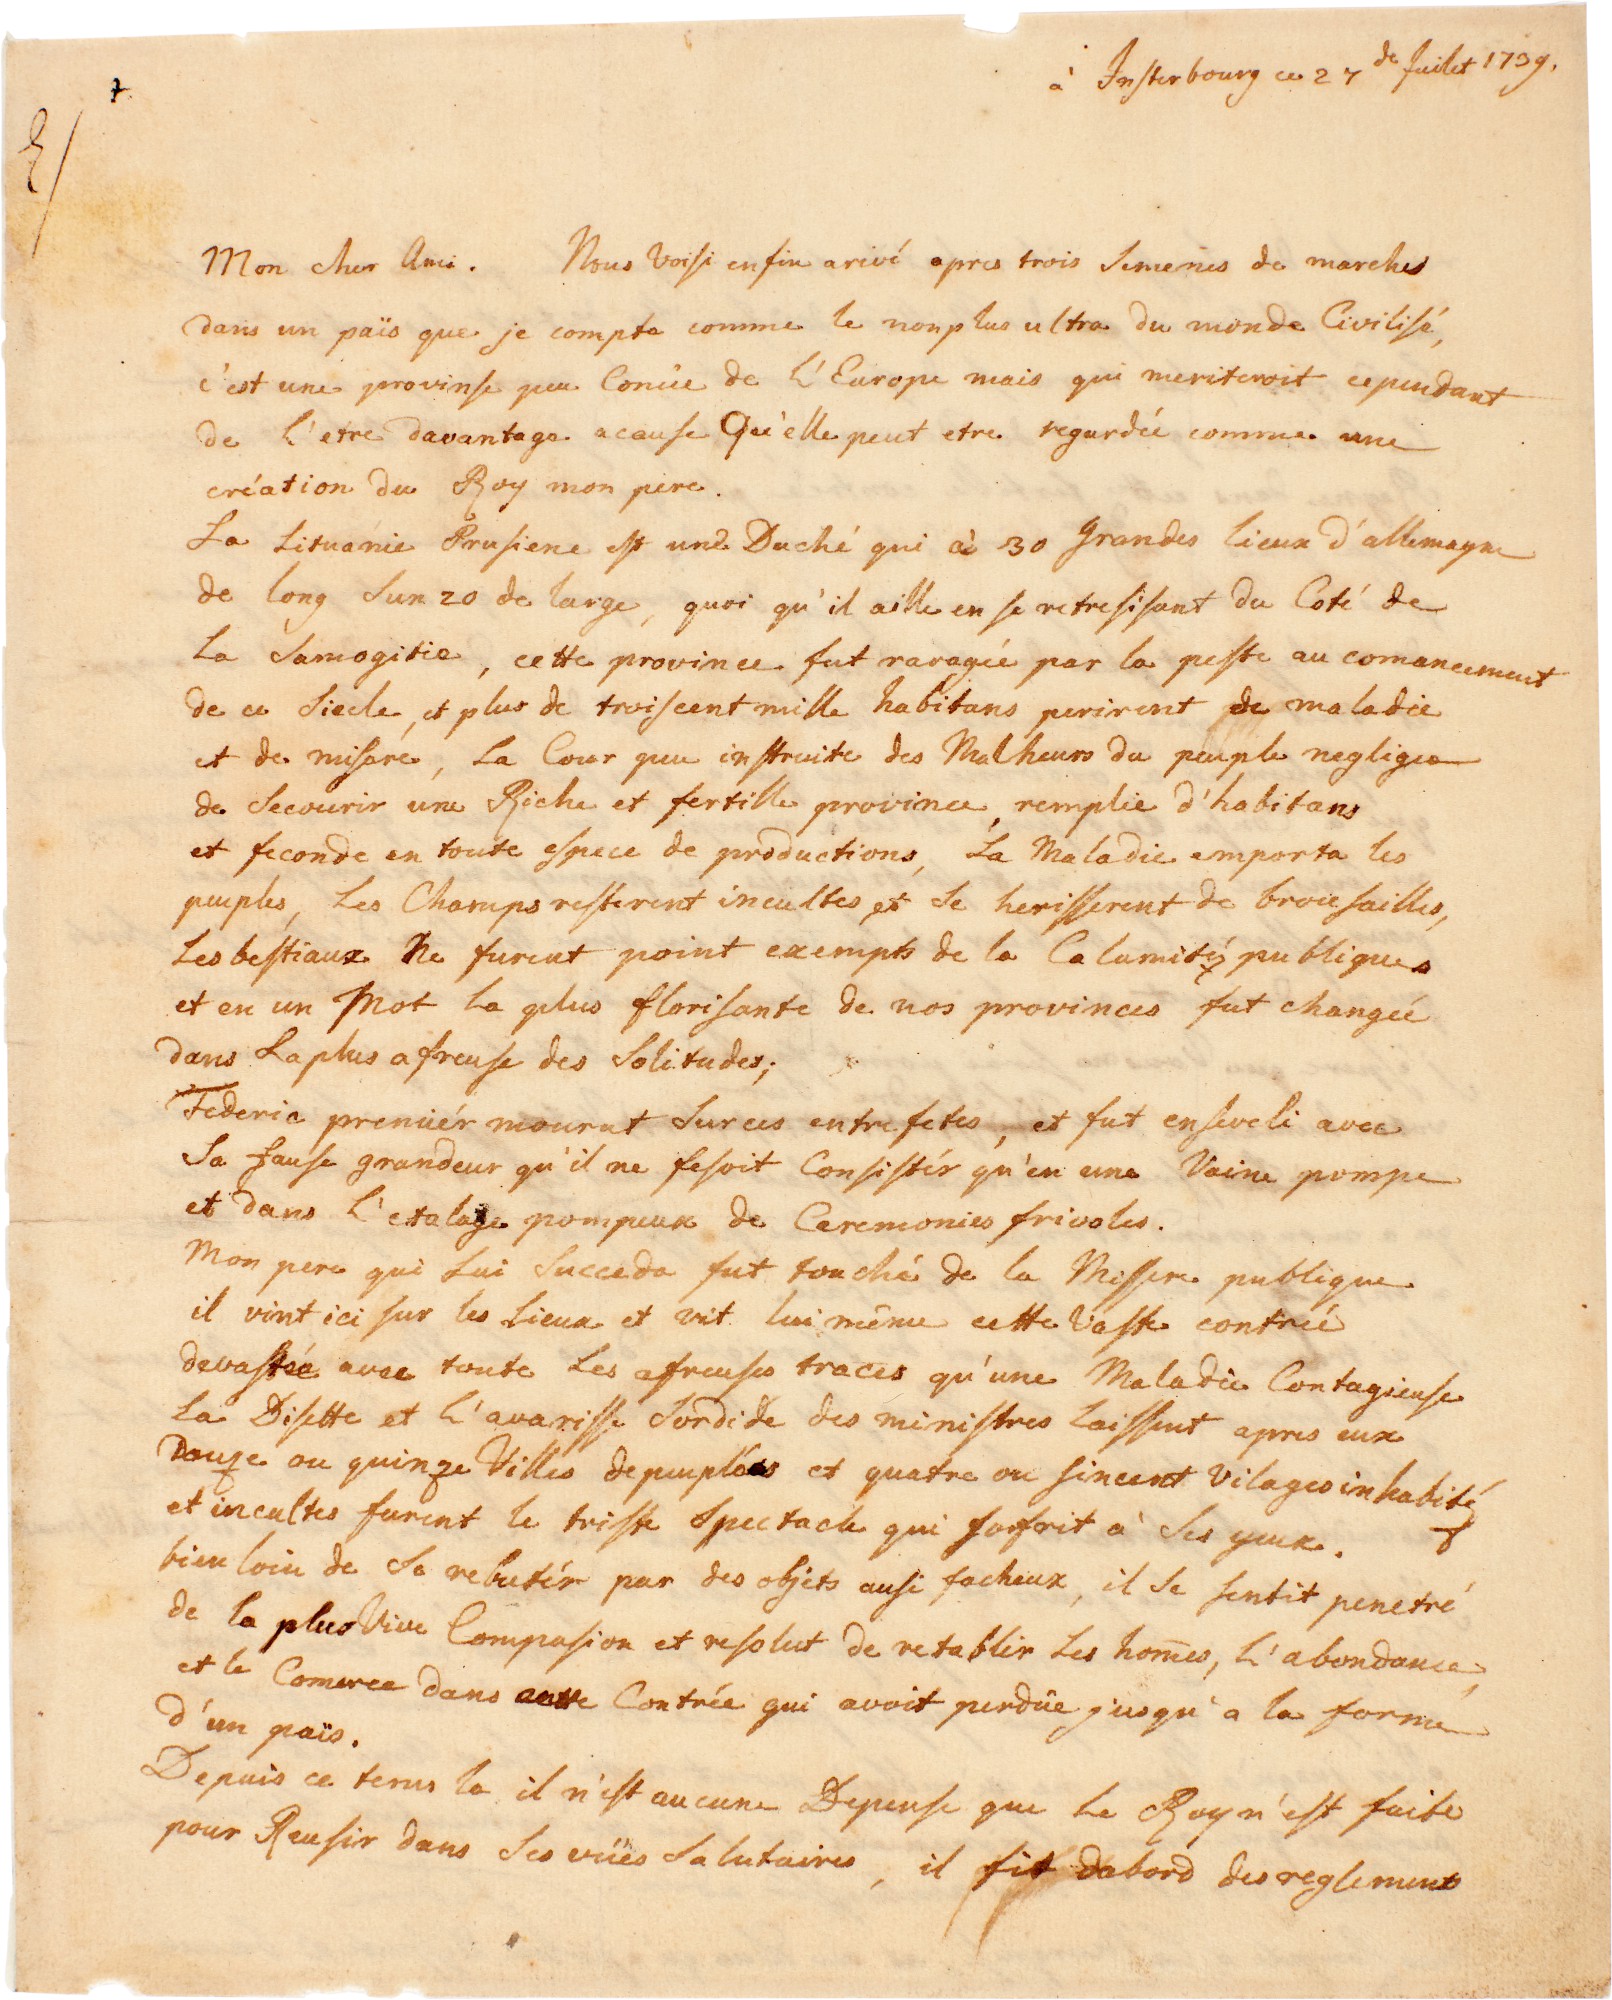 à Insterbourg ce 27 de Juilet 1739.
Mon cher Ami. Nous Voisi enfin arivé apres trois Semenes de marches
dans un païs que je compte comme le nonplus ultra du monde Civilisé,
c'est une provinse peu Conüe de L'Europe mais qui meriteroit cependant
de L'etre davantage acause Qu'elle peut etre regardée comme une
création du Roy mon pere.
La Lituánie Prusiene est une Duché qui à 30 grandes Lieux d'allemagne
de long Sur 20 de large, quoi qu'il aille en se retresisant du Coté de
La Samogitie, cette province fut ravagée par la peste au comancement
de ce Siecle, et plus de troiscent mille habitans perirent de maladie
et de misére, La Cour peu instruite des Malheurs du peuple negligea
de Secourir une Riche et fertille province, remplie d'habitans
et feconde en toute espece de productions, La Maladie emporta les
peuples, Les Champs resterent incultes et Se herisserent de brousailles,
Les bestiaux Ne furent point exempts de la Calamitéz publiques
et en un Mot la plus florisante de nos provinces fut changée
dans La plus afreuse des Solitudes;
Federic premiér mourut Sur ces entrefetes, et fut enseveli avec
Sa fause grandeur qu'il ne fesoit Consistér qu'en une Vaine pompe
et dans L'etalage pompeux de Ceremonies frivoles.
Mon pere qui Lui Succeda fut touché de la Missere publique
il vint ici sur les Lieux et vit lui même cette Vaste contrée
devastée avec toute Les afreuses traces qu'une Maladie Contagieuse
La Disette et L'avarisse Sordide des ministres Laissent apres eux
Douze ou quinze Villes depeuplées et quatre ou sincent Vilages inhabitéz
et incultes furent le triste Spectacle qui s'ofrit à Ses yeux.
bien loin de Se rebutér par des objets ausi facheux, il Se sentit penetré
de la plus Vive Compasion et resolut de retablir Les hom̄es, L'abondance,
et le Comerce dans cette Contrée qui avoit perdûe jusqu'a la forme
d'un païs.
Depuis ce tems la il n'est aucune Depense que Le Roy n'est faite
pour Reusir dans Ses vües Salutaires, il fit dabord des reglements